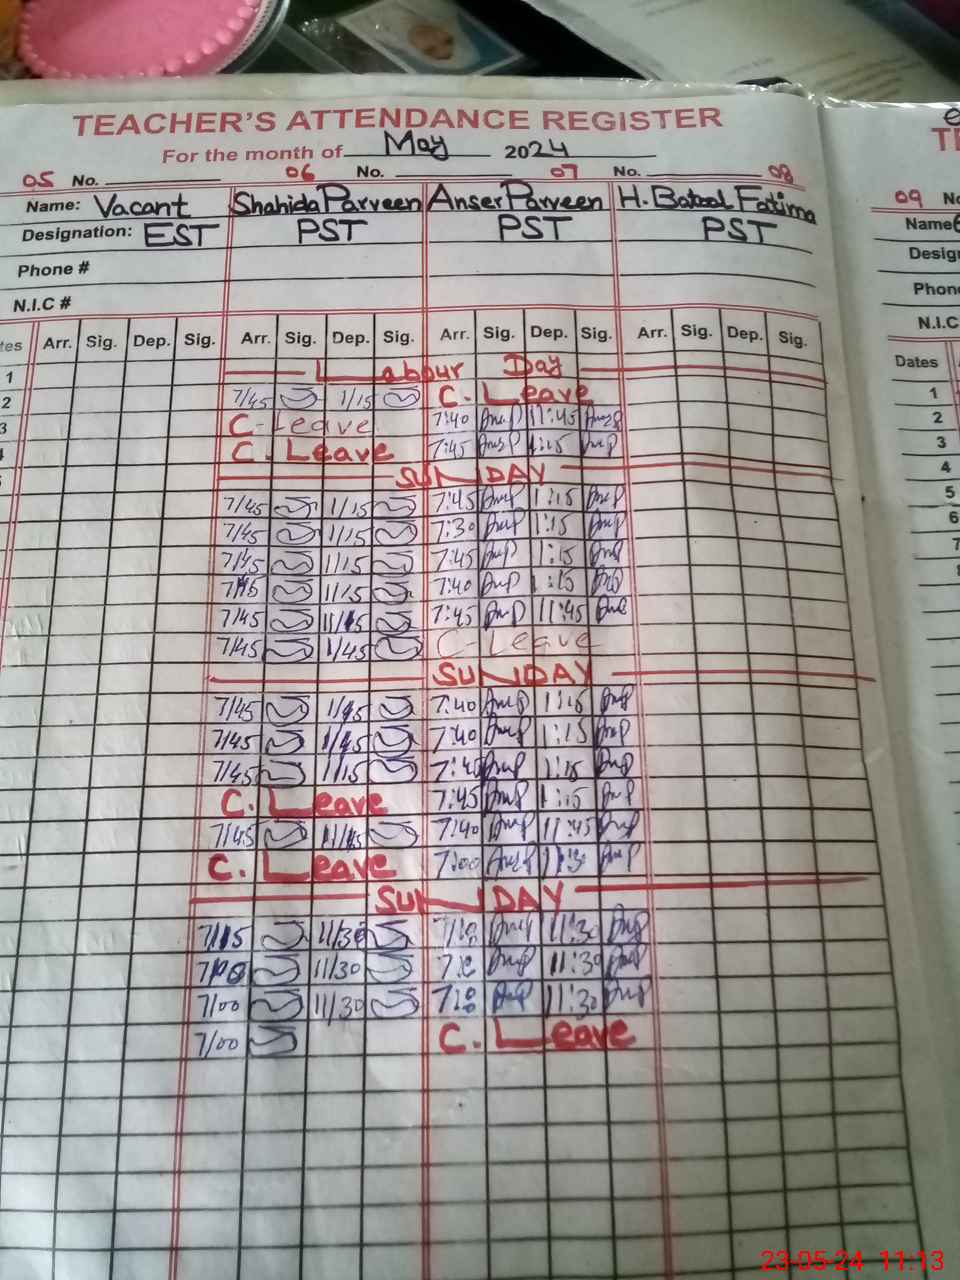 TEACHER'S ATTENDANCE REGISTER
For the month of May 2024
05 No. 06 No. 07 No. 08
Name: Vacant Shahida Parveen Anser Parveen H. Batool Fatima
Designation: EST PST PST PST
Phone #
N.I.C #
tes Arr. Sig. Dep. Sig. Arr. Sig. Dep. Sig. Arr. Sig. Dep. Sig. Arr. Sig. Dep. Sig.
1 Labour Day
2 7/45 1/15 C. Leave
3 C. Leave 7:40 11:45
C. Leave 7:45 1:15
SUNDAY
7/45 1/15 7:45 1:15
7/45 1/15 7:30 1:15
7/45 1/15 7:45 1:15
7/45 11/15 7:40 1:15
7/45 11/15 7:45 11:45
7/45 1/45 C. Leave
SUNDAY
7/45 1/15 7:40 1:15
7/45 1/15 7:40 1:15
7/45 1/15 7:40 1:15
C. Leave 7:45 1:15
7/45 11/15 7:40 11:45
C. Leave 7:00 11:30
SUNDAY
7/15 11/30 11:30
11/30 11:30
7/00 11/30 11:30
7/00 C. Leave
09 No
Name
Desig
Phon
N.I.C
Dates
1
2
3
4
5
6
7
23-05-24 11:13